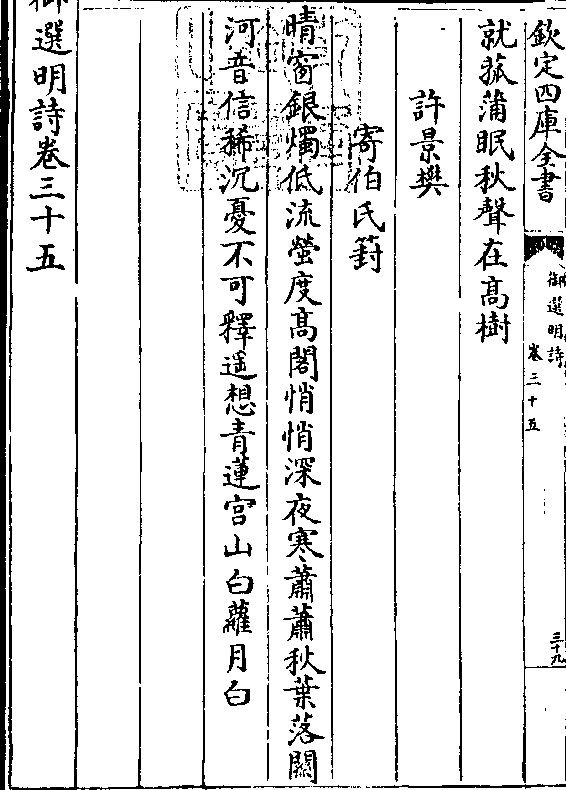 欽定四庫全書
御選明詩
卷三十五
三十九
就菰蒲眠秋聲在髙樹
許景樊
寄伯氏篈
晴窗銀燭低流螢度髙閣悄悄深夜寒蕭蕭秋葉落關
河音信稀沉憂不可釋遥想青蓮宫山白蘿月白
御選明詩卷三十五